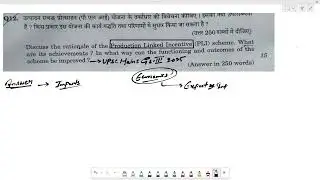 Q12. उत्पादन संबद्ध प्रोत्साहन (पी.एल.आई) योजना के तर्काधार की विवेचना कीजिए। इसकी क्या उपलब्धियाँ
हैं? किस प्रकार इस योजना की कार्य पद्धति तथा परिणामों में सुधार किया जा सकता है?
(उत्तर 250 शब्दों में दीजिए)
Discuss the rationale of the Production Linked Incentive (PLI) scheme. What
are its achievements? In what way can the functioning and outcomes of the
scheme be improved? → UPSC Mains GS-III 2025 (Answer in 250 words) 15
→ Imports
Economics